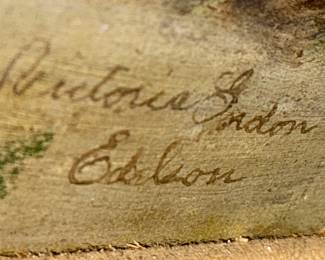 Victoria Gordon
Edelson